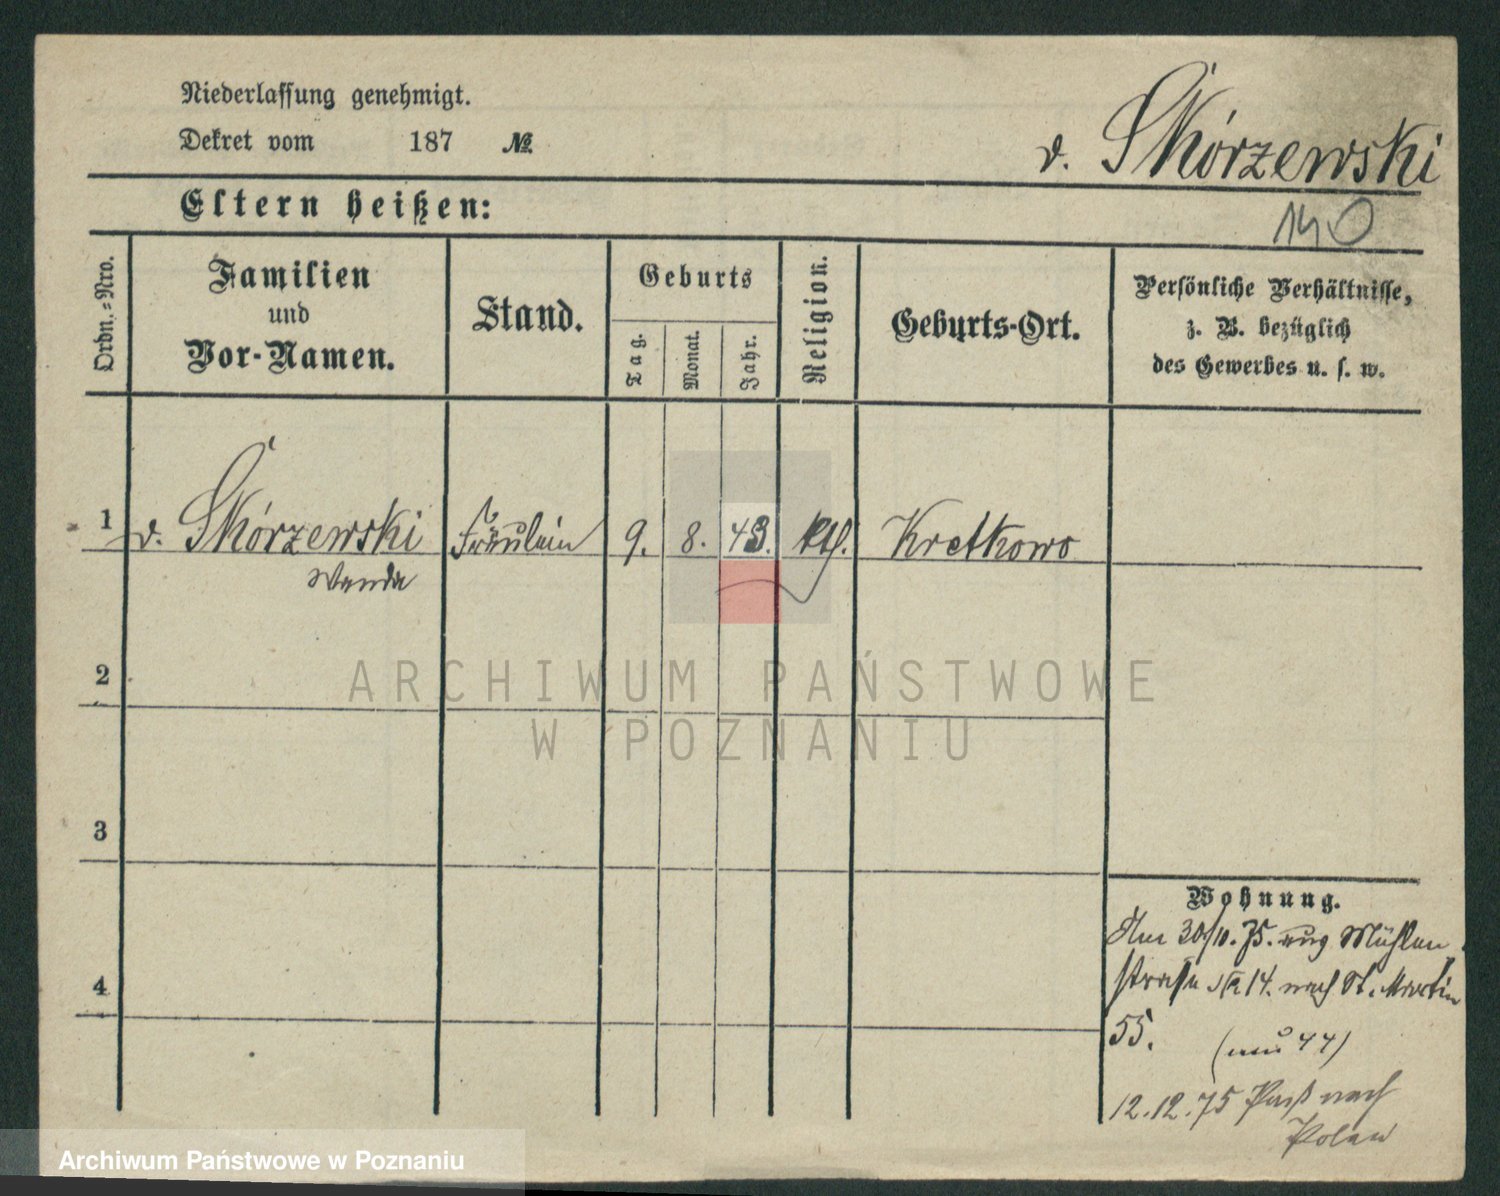 Niederlassung genehmigt.
Dekret vom 187 №
v. Skórzewski
140
Eltern heißen:
Ordn.=Nro.
Familien
und
Vor-Namen.
Stand.
Geburts
Tag.
Monat.
Jahr.
Religion.
Geburts-Ort.
Persönliche Verhältnisse,
z. B. bezüglich
des Gewerbes u. s. w.
1 v. Skórzewski Fräulein 9. 8. 43. kth. Kretkowo
Wanda
2
3
4
Wohnung.
Am 30/10. 75. aus Mühlen
straße № 14. nach St. Martin
55.
(neu 44)
12.12.75 Paß nach
Polen
ARCHIWUM PAŃSTWOWE
W POZNANIU
Archiwum Państwowe w Poznaniu